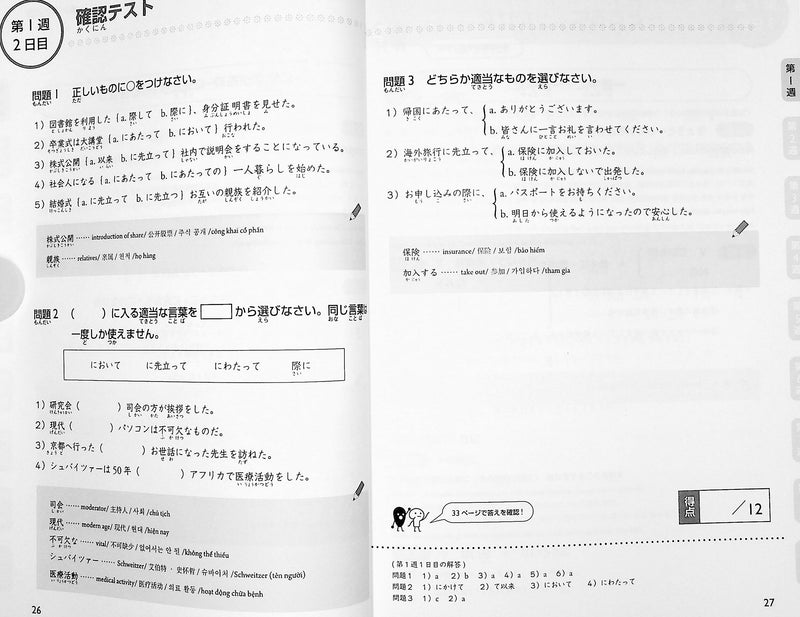 第1週
2日目
確認テスト
かくにん
問題1 正しいものに○をつけなさい。
1) 図書館を利用した {a. 際して b. 際に}、身分証明書を見せた。
2) 卒業式は大講堂 {a. にあたって b. において} 行われた。
3) 株式公開 {a. 以来 b. に先立って} 社内で説明会をすることになっている。
4) 社会人になる {a. にあたって b. にあたっての} 一人暮らしを始めた。
5) 結婚式 {a. に先立って b. に先立つ} お互いの親族を紹介した。
株式公開 …… introduction of share/ 公开股票 / 주식 공개 /công khai cổ phần
親族 …… relatives/ 亲属 / 친척 /họ hàng
問題2 ( )に入る適当な言葉を から選びなさい。同じ言葉は
一度しか使えません。
において に先立って にわたって 際に
1) 研究会 ( ) 司会の方が挨拶をした。
2) 現代 ( ) パソコンは不可欠なものだ。
3) 京都へ行った ( ) お世話になった先生を訪ねた。
4) シュバイツァーは50年 ( ) アフリカで医療活動をした。
司会 …… moderator/ 主持人 / 사회 /chủ tịch
現代 …… modern age/ 现代 / 현대 /hiện nay
不可欠な …… vital/ 不可缺少 / 없어서는 안 될 /không thể thiếu
シュバイツァー …… Schweitzer/ 艾伯特・史怀哲 / 슈바이처 /Schweitzer (tên người)
医療活動 …… medical activity/ 医疗活动 / 의료 활동 /hoạt động chữa bệnh
26
問題3 どちらか適当なものを選びなさい。
1) 帰国にあたって、
a. ありがとうございます。
b. 皆さんに一言お礼を言わせてください。
2) 海外旅行に先立って、
a. 保険に加入しておいた。
b. 保険に加入しないで出発した。
3) お申し込みの際に、
a. パスポートをお持ちください。
b. 明日から使えるようになったので安心した。
保険 …… insurance/ 保险 / 보험 /bảo hiểm
加入する …… take out/ 参加 / 가입하다 /tham gia
第1週
33ページで答えを確認!
得点 /12
(第1週1日目の解答)
問題1 1) a 2) b 3) a 4) a 5) a 6) a
問題2 1) にかけて 2) て以来 3) において 4) にわたって
問題3 1) c 2) a
27